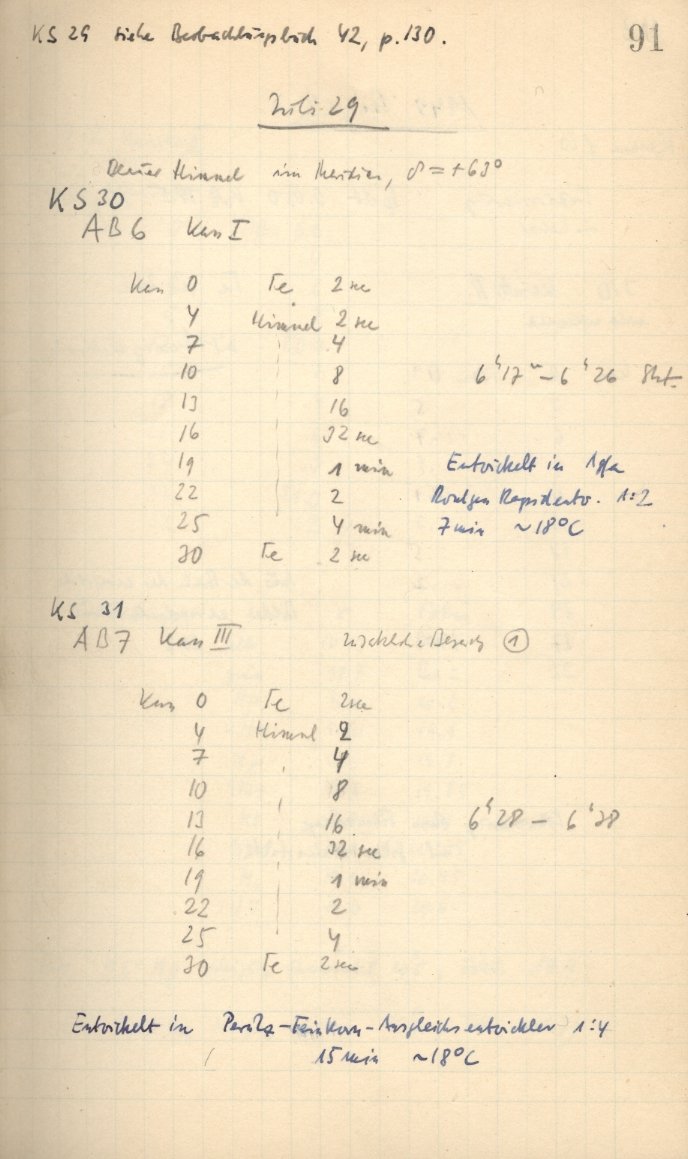 KS 29 siehe Beobachtungsbuch 42, p. 130.
91
Juli 29
Himmel im Meridian, δ = +63°
KS 30
AB6 Kass I
Kass 0 Te 2 sec
4 Himmel 2 sec
7 " 4
10 " 8 6ʰ17ᵐ – 6ʰ26
13 " 16
16 " 32 sec
19 " 1 min Entwickelt in Agfa
22 " 2 Röntgen Rapidentw. 1:2
25 4 min 7 min ~18°C
30 Te 2 sec
KS 31
AB7 Kass III ①
Kass 0 Te 2 sec
4 Himmel 2
7 " 4
10 " 8
13 " 16 6ʰ28 – 6ʰ38
16 " 32 sec
19 " 1 min
22 " 2
25 4
30 Te 2 sec
Entwickelt in Perutz-Feinkorn-Ausgleichsentwickler 1:4
15 min ~18°C